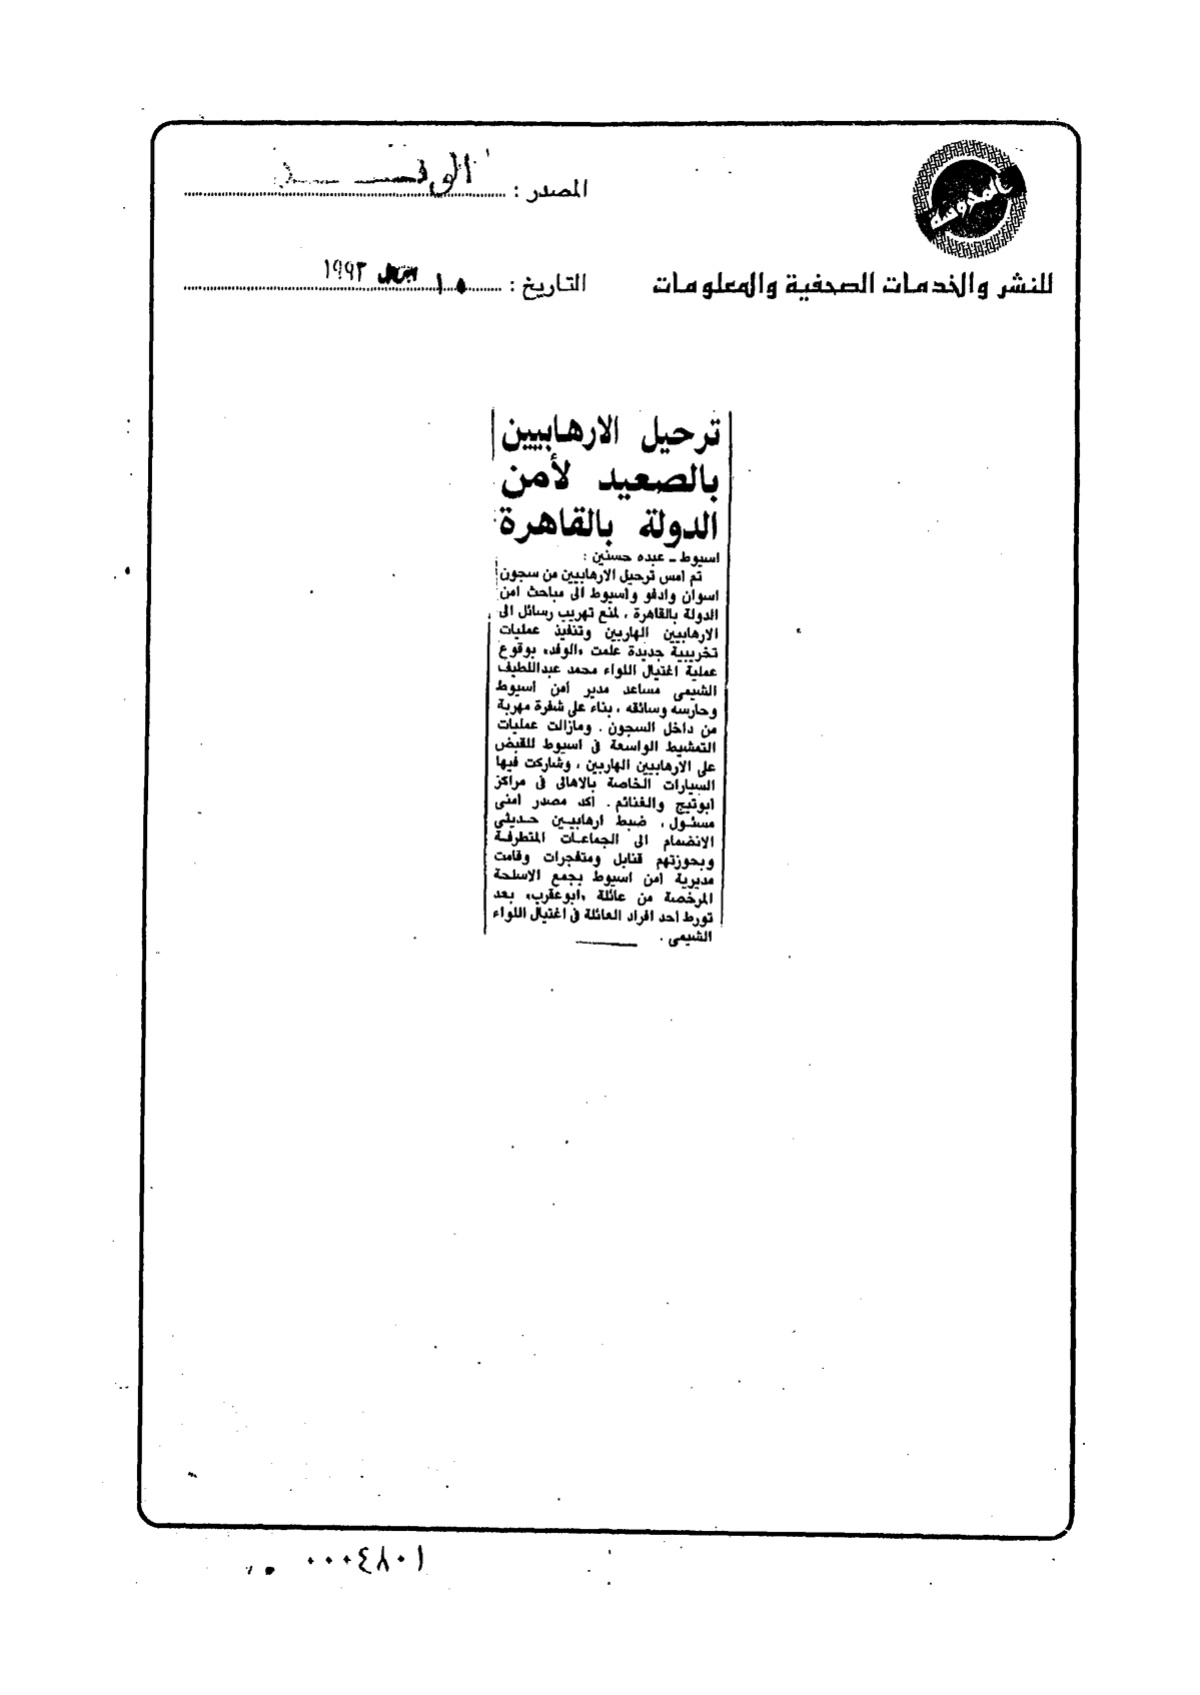 المحروسة
المصدر : الوفد
للنشر والخدمات الصحفية والمعلومات
التاريخ : ١٥ ابريل ١٩٩٣
ترحيل الارهابيين
بالصعيد لأمن
الدولة بالقاهرة
اسيوط ـ عبده حسنين :
تم امس ترحيل الارهابيين من سجون
اسوان وادفو واسيوط الى مباحث امن
الدولة بالقاهرة ، لمنع تهريب رسائل الى
الارهابيين الهاربين وتنفيذ عمليات
تخريبية جديدة علمت «الوفد» بوقوع
عملية اغتيال اللواء محمد عبداللطيف
الشيمى مساعد مدير أمن أسيوط
وحارسه وسائقه ، بناء على شفرة مهربة
من داخل السجون . ومازالت عمليات
التمشيط الواسعة فى اسيوط للقبض
على الارهابيين الهاربين ، وشاركت فيها
السيارات الخاصة بالاهالى فى مراكز
ابوتيج والغنائم . اكد مصدر امنى
مسئول ، ضبط ارهابيين حديثى
الانضمام الى الجماعات المتطرفة
وبحوزتهم قنابل ومتفجرات وقامت
مديرية امن اسيوط بجمع الاسلحة
المرخصة من عائلة «ابوعقرب» بعد
تورط احد افراد العائلة فى اغتيال اللواء
الشيمى .
٠٠٠٤٨٠١